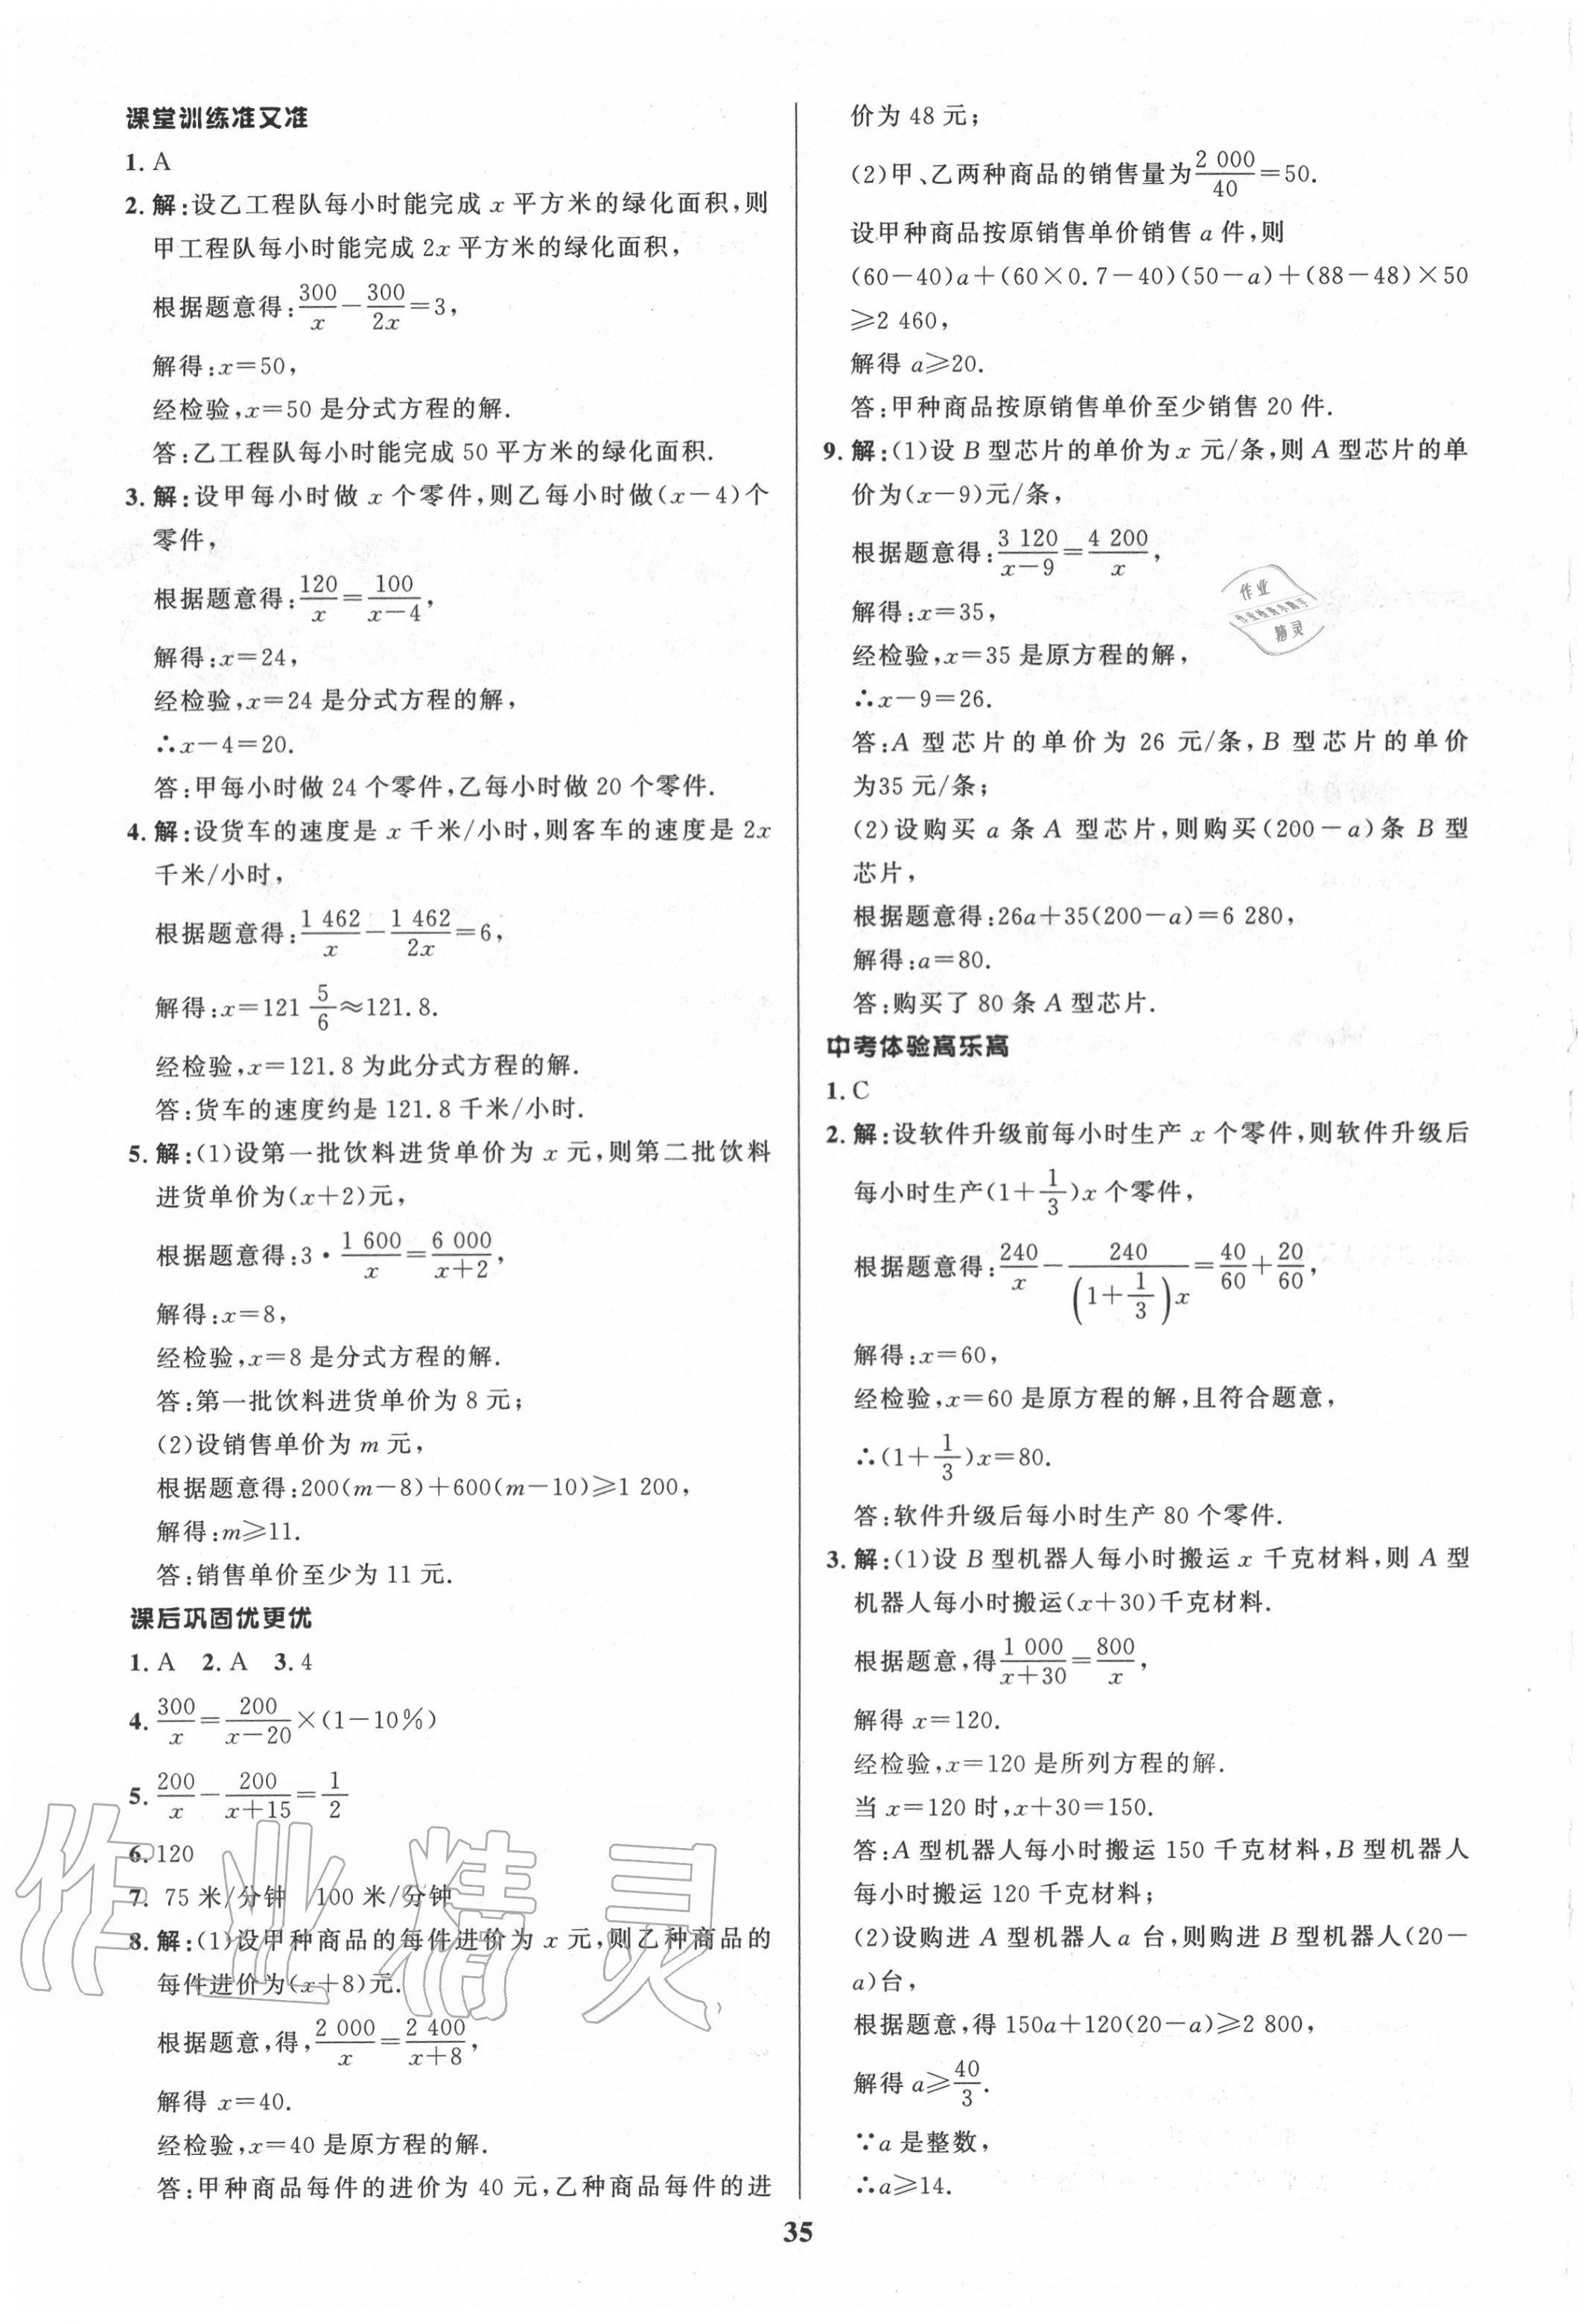 课堂训练准又准
1. A
2. 解:设乙工程队每小时能完成 x 平方米的绿化面积,则
甲工程队每小时能完成 2x 平方米的绿化面积,
根据题意得:300/x－300/2x＝3,
解得:x＝50,
经检验,x＝50 是分式方程的解.
答:乙工程队每小时能完成 50 平方米的绿化面积.
3. 解:设甲每小时做 x 个零件,则乙每小时做(x－4)个
零件,
根据题意得:120/x＝100/(x－4),
解得:x＝24,
经检验,x＝24 是分式方程的解,
∴x－4＝20.
答:甲每小时做 24 个零件,乙每小时做 20 个零件.
4. 解:设货车的速度是 x 千米/小时,则客车的速度是 2x
千米/小时,
根据题意得:1 462/x－1 462/2x＝6,
解得:x＝121 5/6≈121.8.
经检验,x＝121.8 为此分式方程的解.
答:货车的速度约是 121.8 千米/小时.
5. 解:(1)设第一批饮料进货单价为 x 元,则第二批饮料
进货单价为(x＋2)元,
根据题意得:3·1 600/x＝6 000/(x＋2),
解得:x＝8,
经检验,x＝8 是分式方程的解.
答:第一批饮料进货单价为 8 元;
(2)设销售单价为 m 元,
根据题意得:200(m－8)＋600(m－10)⩾1 200,
解得:m⩾11.
答:销售单价至少为 11 元.
课后巩固优更优
1. A 2. A 3. 4
4. 300/x＝200/(x－20)×(1－10%)
5. 200/x－200/(x＋15)＝1/2
6. 120
7. 75 米/分钟 100 米/分钟
8. 解:(1)设甲种商品的每件进价为 x 元,则乙种商品的
每件进价为(x＋8)元.
根据题意,得,2 000/x＝2 400/(x＋8),
解得 x＝40.
经检验,x＝40 是原方程的解.
答:甲种商品每件的进价为 40 元,乙种商品每件的进
价为 48 元;
(2)甲、乙两种商品的销售量为2 000/40＝50.
设甲种商品按原销售单价销售 a 件,则
(60－40)a＋(60×0.7－40)(50－a)＋(88－48)×50
⩾2 460,
解得 a⩾20.
答:甲种商品按原销售单价至少销售 20 件.
9. 解:(1)设 B 型芯片的单价为 x 元/条,则 A 型芯片的单
价为(x－9)元/条,
根据题意得:3 120/(x－9)＝4 200/x,
解得:x＝35,
经检验,x＝35 是原方程的解,
∴x－9＝26.
答:A 型芯片的单价为 26 元/条,B 型芯片的单价
为35 元/条;
(2)设购买 a 条 A 型芯片,则购买(200－a)条 B 型
芯片,
根据题意得:26a＋35(200－a)＝6 280,
解得:a＝80.
答:购买了 80 条 A 型芯片.
中考体验高乐高
1. C
2. 解:设软件升级前每小时生产 x 个零件,则软件升级后
每小时生产(1＋1/3)x 个零件,
根据题意得:240/x－240/((1＋1/3)x)＝40/60＋20/60,
解得:x＝60,
经检验,x＝60 是原方程的解,且符合题意,
∴(1＋1/3)x＝80.
答:软件升级后每小时生产 80 个零件.
3. 解:(1)设 B 型机器人每小时搬运 x 千克材料,则 A 型
机器人每小时搬运(x＋30)千克材料.
根据题意,得1 000/(x＋30)＝800/x,
解得 x＝120.
经检验,x＝120 是所列方程的解.
当 x＝120 时,x＋30＝150.
答:A 型机器人每小时搬运 150 千克材料,B 型机器人
每小时搬运 120 千克材料;
(2)设购进 A 型机器人 a 台,则购进 B 型机器人(20－
a)台,
根据题意,得 150a＋120(20－a)⩾2 800,
解得 a⩾40/3.
∵a 是整数,
∴a⩾14.
35
作业
精灵
作业精灵